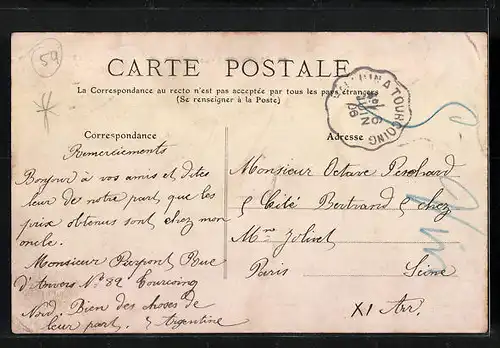 59
CARTE POSTALE
La Correspondance au recto n'est pas acceptée par tous les pays étrangers
(Se renseigner à la Poste)
A TOURCOING
JUIN
06
Correspondance
Remerciements
Bonjour à vos amis et dites
leur de notre part que les
prix obtenus sont chez mon
oncle.
Monsieur Parpont Rue
d'Anvers No 89 Tourcoing
Nord. Bien des choses de
leur part. Argentine
Adresse
Monsieur Octave
5 Cité Bertrand 5 chez
Mme Jolivet
Paris Seine
XI Arr.